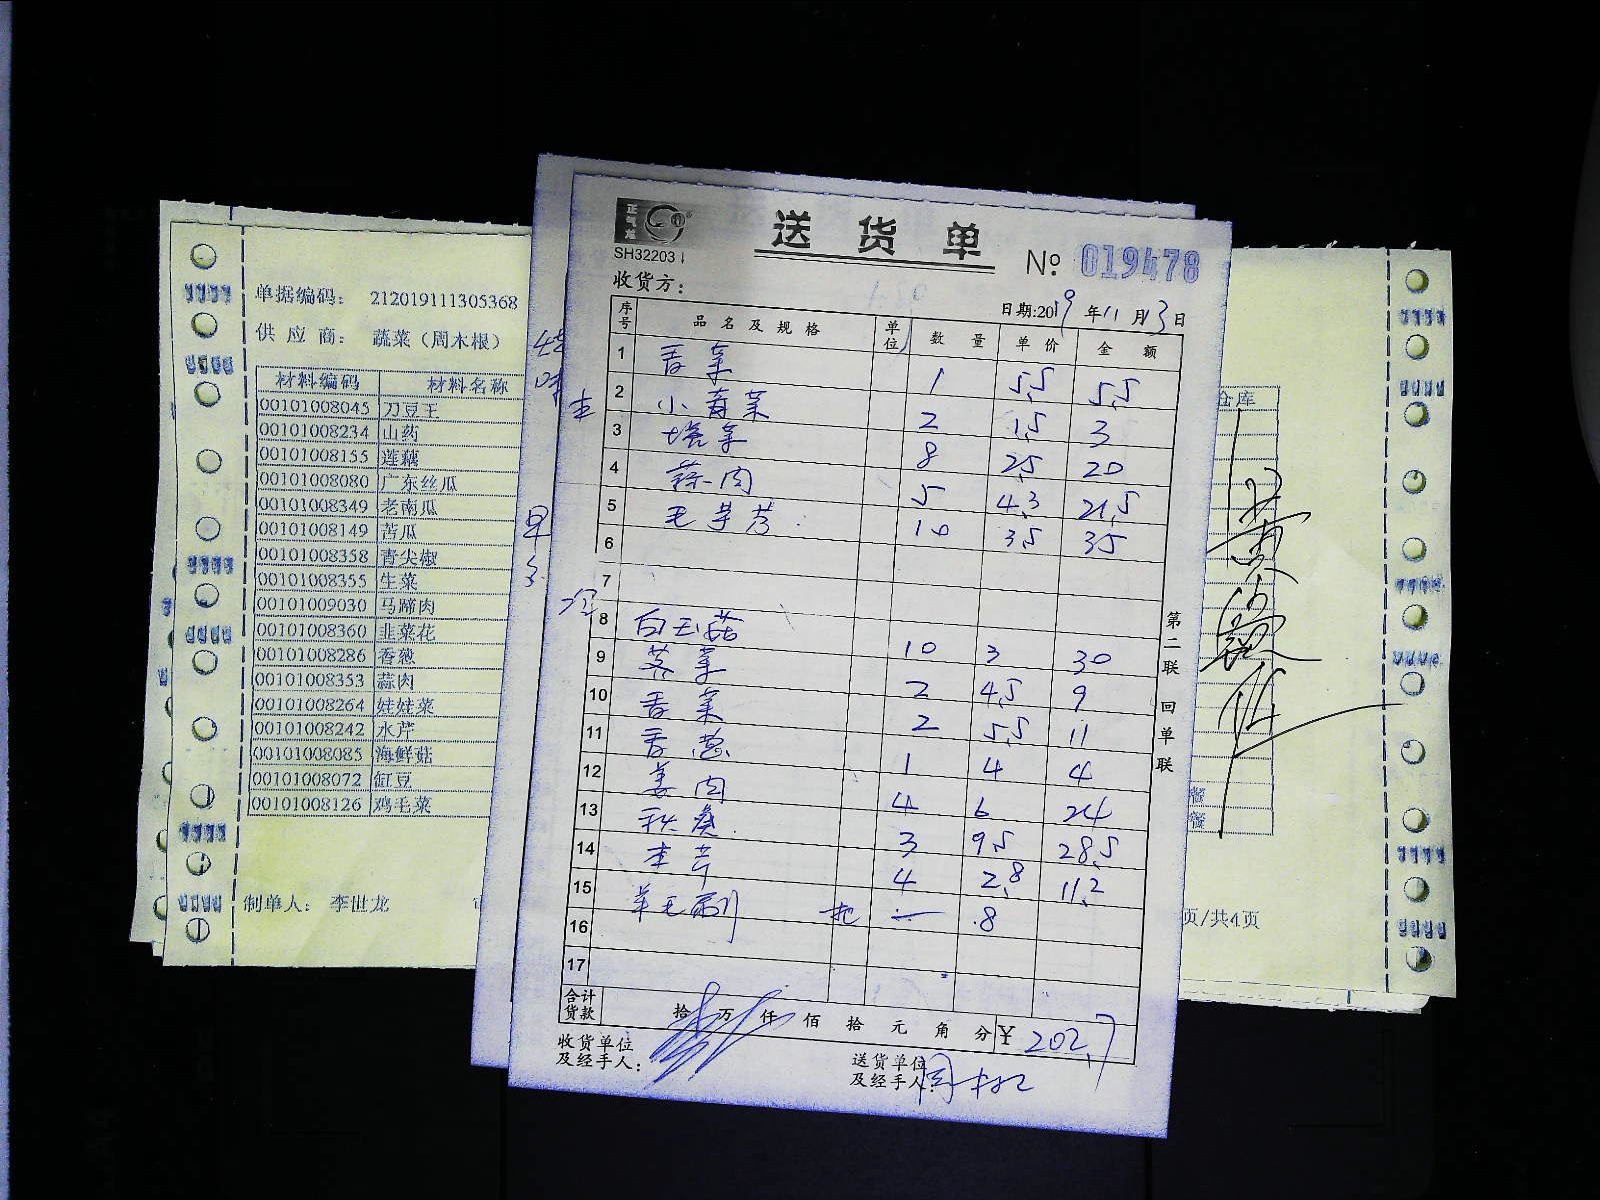 正气龙
SH32203
送货单
№ 019478
收货方：
日期:2019年11月3日
序号 品名及规格 单位 数量 单价 金额
1 香菜 1 5.5 5.5
2 小青菜 2 1.5 3
3 塔菜 8 2.5 20
4 蒜肉 5 4.3 21.5
5 毛芋艿 10 3.5 35
6
7
8 白玉菇 10 3 30
9 2 4.5 9
10 香菜 2 5.5 11
11 香葱 1 4 4
12 姜肉 4 6 24
13 秋葵 3 9.5 28.5
14 本芹 4 2.8 11.2
15 羊毛刷 把 一 .8
16
17
合计货款 拾万仟佰拾元角分 ¥ 202.7
收货单位及经手人：
送货单位及经手人：
第二联 回单联
单据编码： 212019111305368
供应商： 蔬菜（周木根）
材料编码 材料名称
00101008045 刀豆王
00101008234 山药
00101008155 莲藕
00101008080 广东丝瓜
00101008349 老南瓜
00101008149 苦瓜
00101008358 青尖椒
00101008355 生菜
00101009030 马蹄肉
00101008360 韭菜花
00101008286 香葱
00101008353 蒜肉
00101008264 娃娃菜
00101008242 水芹
00101008085 海鲜菇
00101008072 缸豆
00101008126 鸡毛菜
制单人： 李世龙
仓库
餐
餐
页/共4页